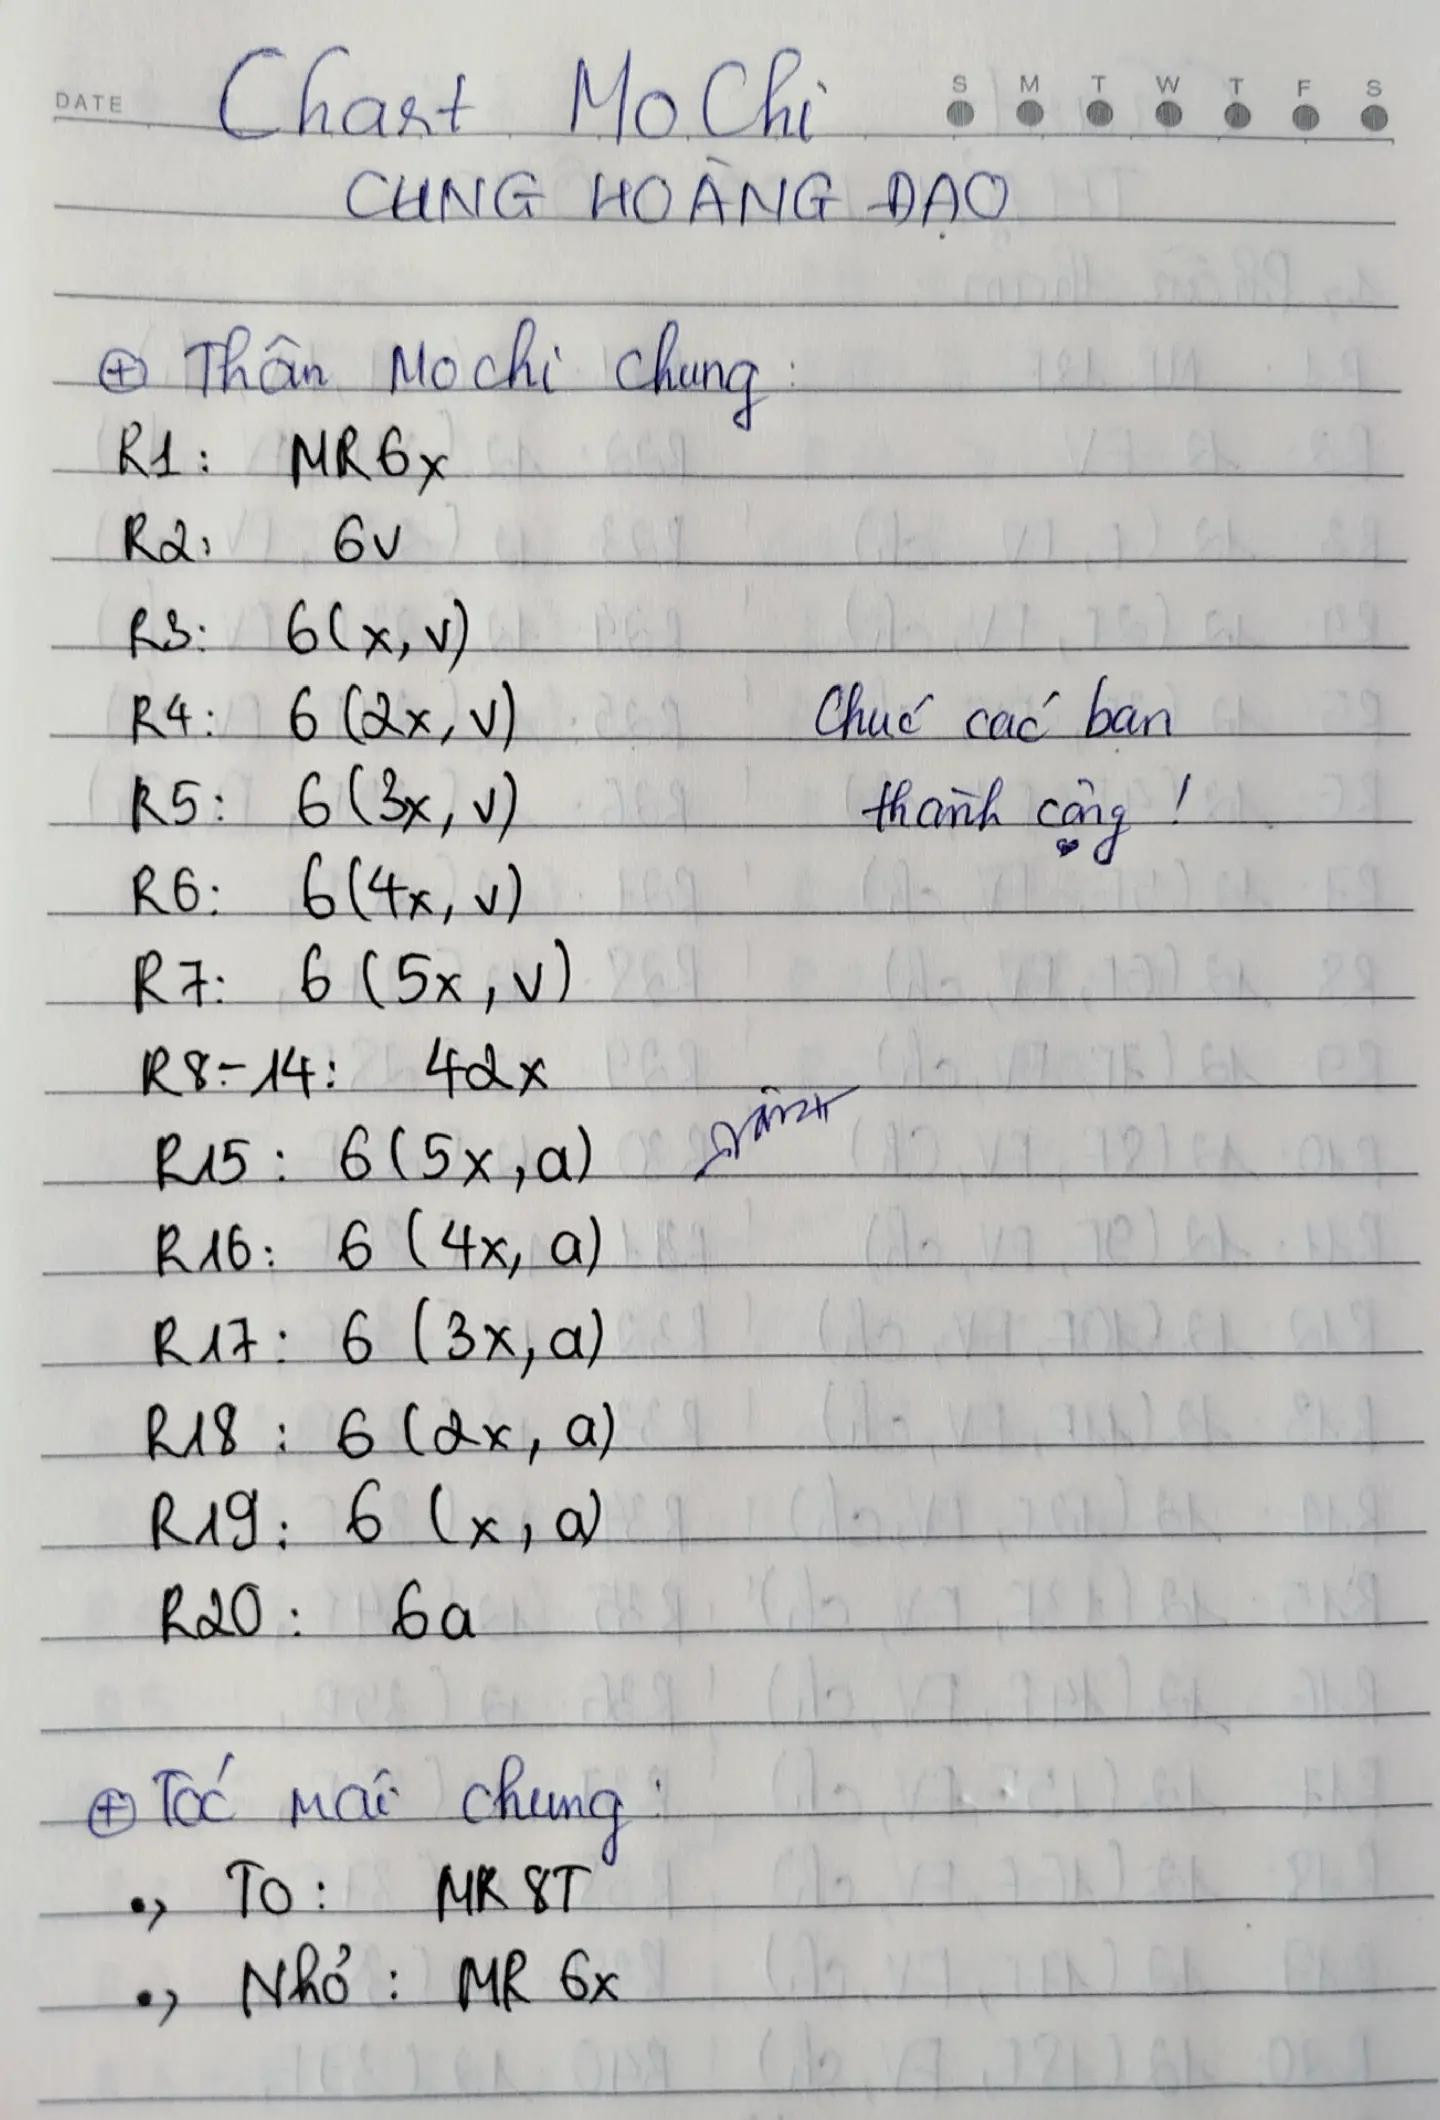 DATE
Chart MoChi
S M T W T F S
CUNG HOÀNG ĐẠO
⊕ Thân Mochi chung:
R1: MR6x
R2: 6v
R3: 6(x, v)
R4: 6(2x, v)
Chúc các bạn
R5: 6(3x, v)
thành công!
R6: 6(4x, v)
R7: 6(5x, v)
R8-14: 42x
R15: 6(5x, a)
R16: 6(4x, a)
R17: 6(3x, a)
R18: 6(2x, a)
R19: 6(x, a)
R20: 6a
⊕ Tóc mái chung:
•, To: MR 8T
•, Nhỏ: MR 6x